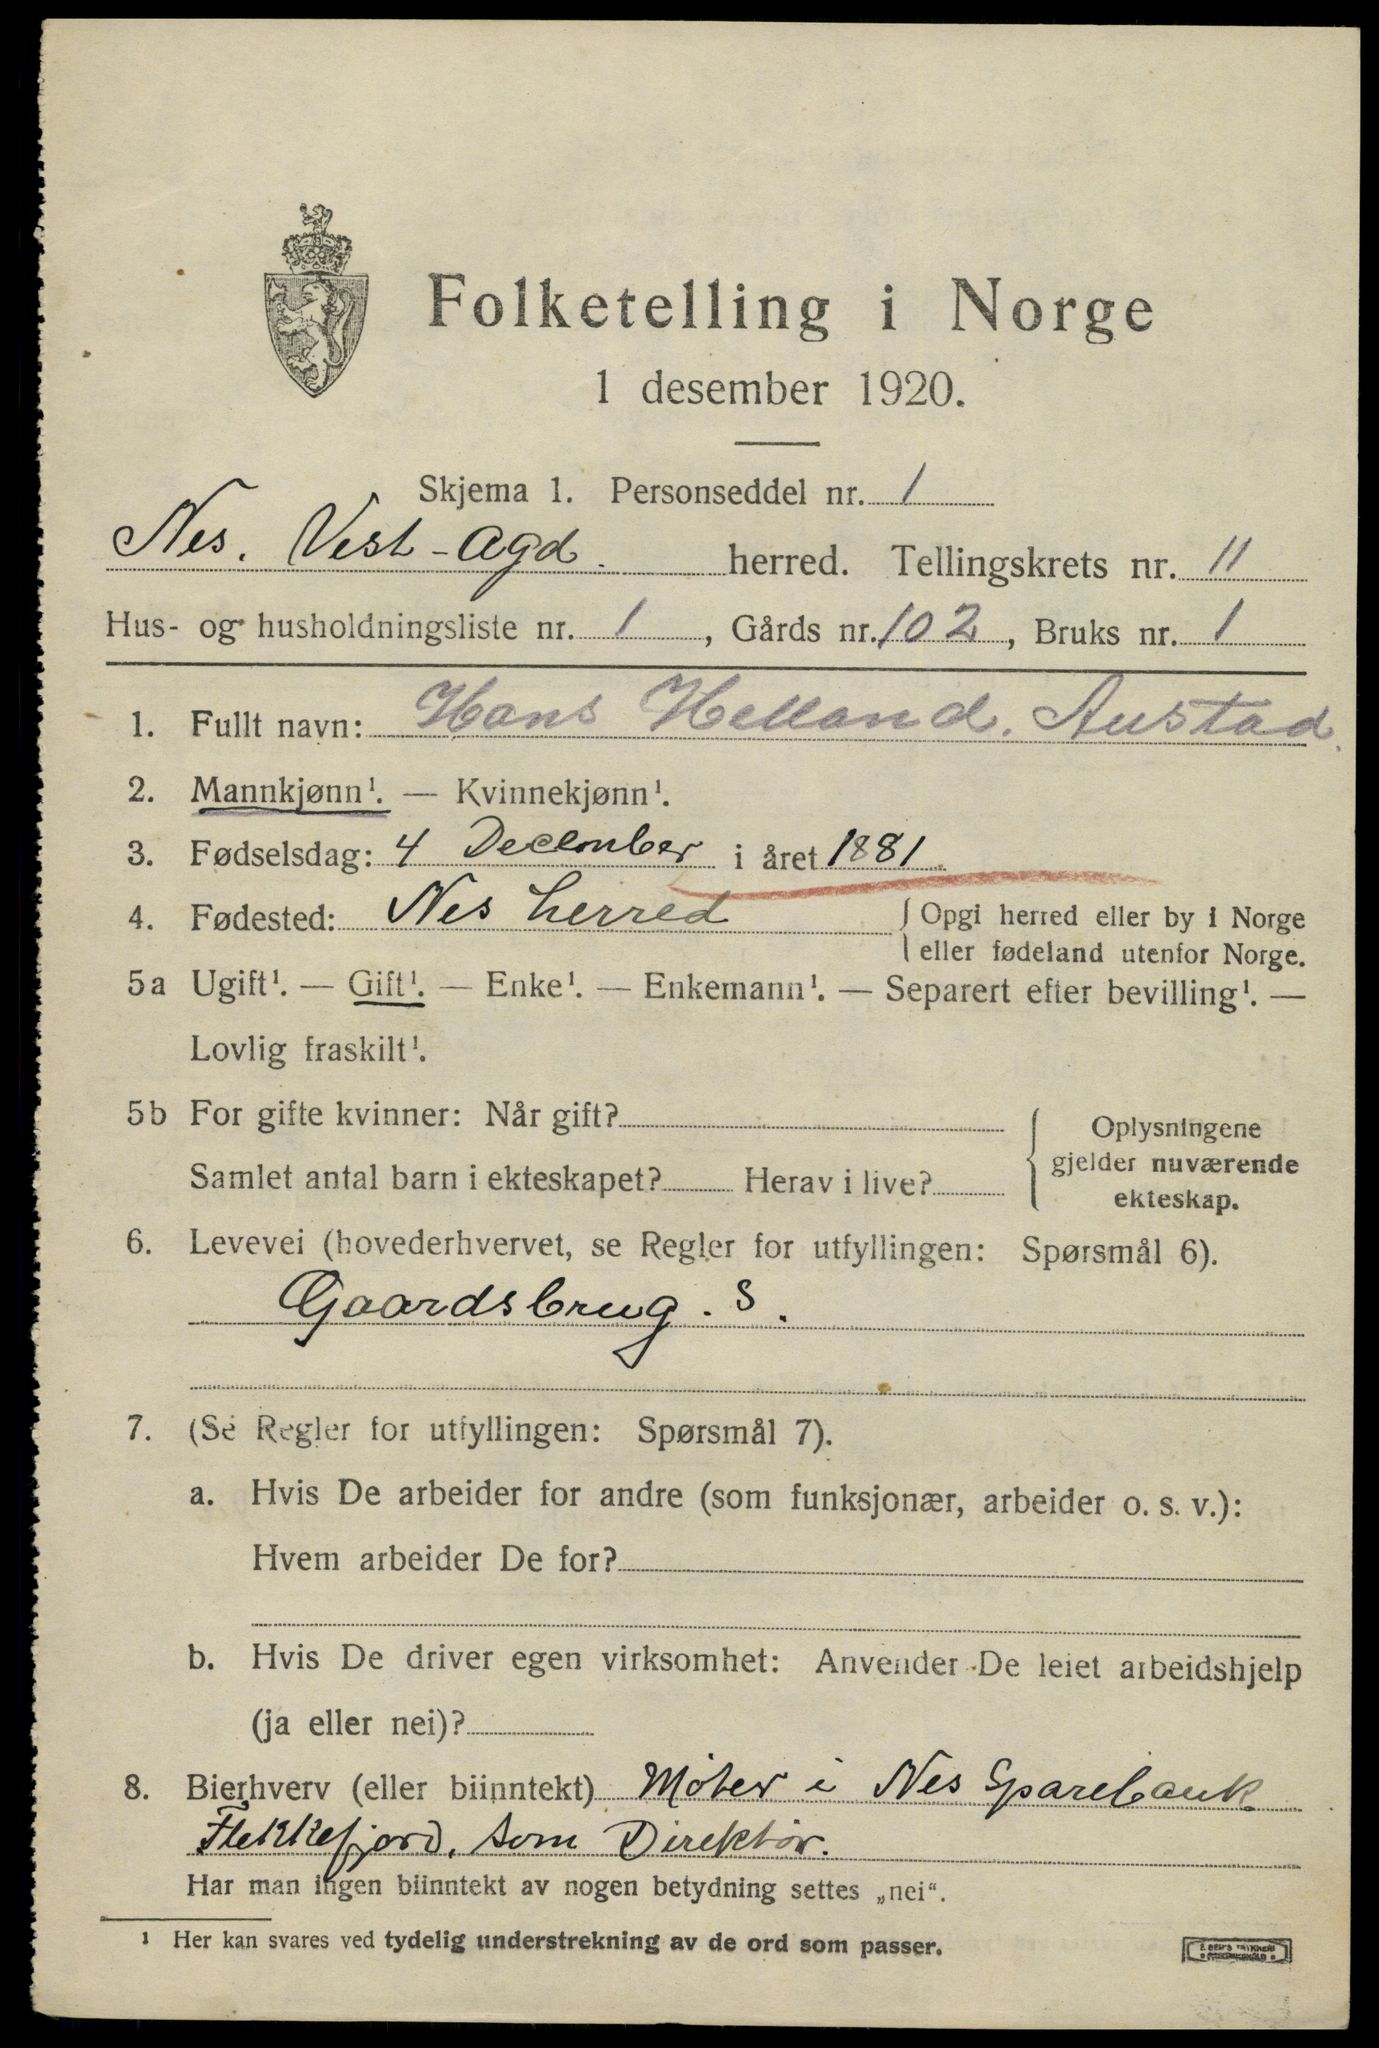 Folketelling i Norge
1 desember 1920.
Skjema 1. Personseddel nr. 1
Nes. Vest-Agd. herred. Tellingskrets nr. 11
Hus- og husholdningsliste nr. 1, Gårds nr. 102, Bruks nr. 1
1. Fullt navn: Hans Helland. Austad.
2. Mannkjønn¹. — Kvinnekjønn¹.
3. Fødselsdag: 4 December i året 1881.
4. Fødested: Nes herred { Opgi herred eller by i Norge
eller fødeland utenfor Norge.
5a Ugift¹. — Gift¹. — Enke¹. — Enkemann¹. — Separert efter bevilling¹. —
Lovlig fraskilt¹.
5b For gifte kvinner: Når gift?
Samlet antal barn i ekteskapet? Herav i live?
{ Oplysningene
gjelder nuværende
ekteskap.
6. Levevei (hovederhvervet, se Regler for utfyllingen: Spørsmål 6).
Gaardsbrug. S.
7. (Se Regler for utfyllingen: Spørsmål 7).
a. Hvis De arbeider for andre (som funksjonær, arbeider o. s. v.):
Hvem arbeider De for?
b. Hvis De driver egen virksomhet: Anvender De leiet arbeidshjelp
(ja eller nei)?
8. Bierhverv (eller biinntekt) Møter i Nes Sparebank
Flekkefjord, som Direktør.
Har man ingen biinntekt av nogen betydning settes „nei“.
¹ Her kan svares ved tydelig understrekning av de ord som passer.